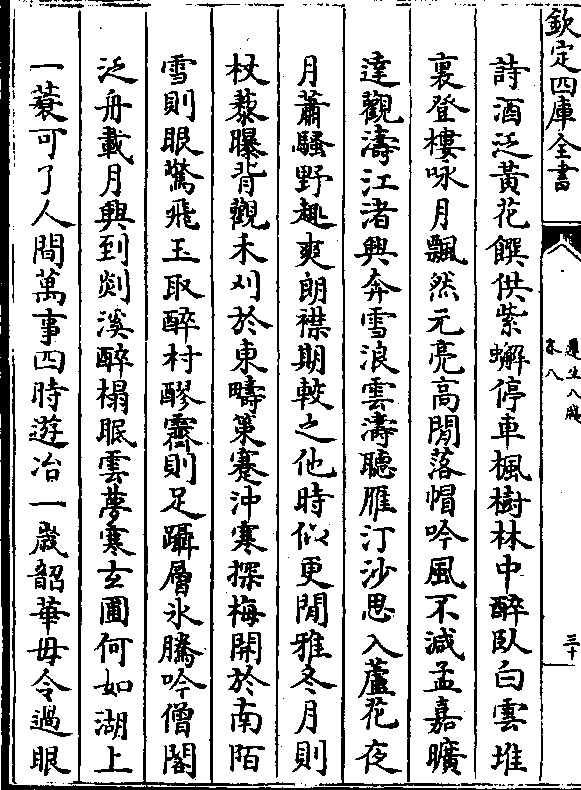 欽定四庫全書
遵生八牋
卷八
三十
詩酒泛黃花饌供紫蠏停車楓樹林中醉臥白雲堆
裏登樓咏月飄然元亮高閒落帽吟風不減孟嘉曠
達觀濤江渚興奔雪浪雲濤聽雁汀沙思入蘆花夜
月蕭騷野趣爽朗襟期較之他時似更閒雅冬月則
杖藜曝背觀禾刈於東疇策蹇沖寒探梅開於南陌
雪則眼驚飛玉取醉村醪霽則足躡層氷騰吟僧閣
泛舟載月興到剡溪醉榻眠雲夢寒玄圃何如湖上
一蓑可了人間萬事四時遊冶一歲韶華毋令過眼